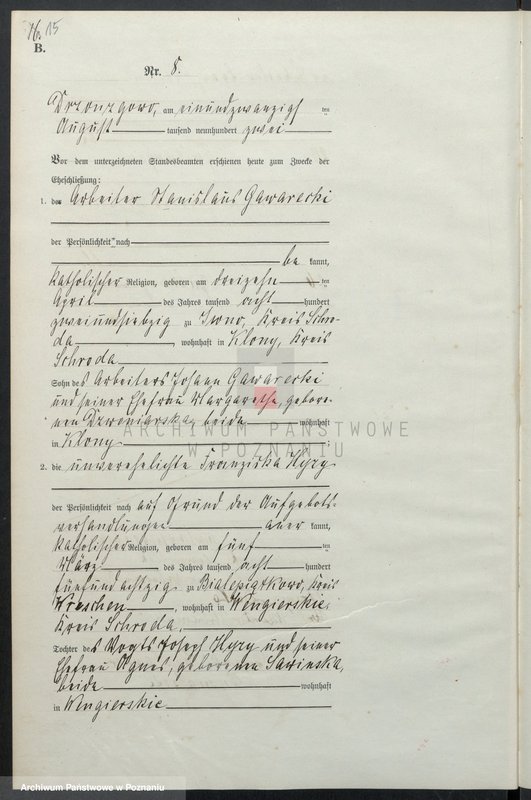 15
B.
Nr. 8.
am einundzwanzigs ten
August tausend neunhundert zwei
Vor dem unterzeichneten Standesbeamten erschienen heute zum Zwecke der
Eheschließung:
1. der Arbeiter Stanislaus Gawarecki
der Persönlichkeit nach
be kannt,
katholischer Religion, geboren am dreizehn ten
April des Jahres tausend acht hundert
zweiundsiebzig zu Iwno, Kreis Schro-
da, wohnhaft in Klony, Kreis
Schroda
Sohn des Arbeiters Johann Gawarecki
und seiner Ehefrau Margarethe, gebore-
nen Dzwoniarska, beide wohnhaft
in Klony
ARCHIWUM PAŃSTWOWE
W POZNANIU
2. die unverehelichte Franziska Hyzy
der Persönlichkeit nach auf Grund der Aufgebots-
verhandlungen aner kannt,
katholischer Religion, geboren am fünf ten
März des Jahres tausend acht hundert
fünfundachtzig zu Bialepiątkowo, Kreis
Wreschen, wohnhaft in Wengierskie,
Kreis Schroda,
Tochter des Vogts Joseph Hyzy und seiner
Ehefrau Agnes, geborenen Sawinska,
beide wohnhaft
in Wengierskie
Archiwum Państwowe w Poznaniu